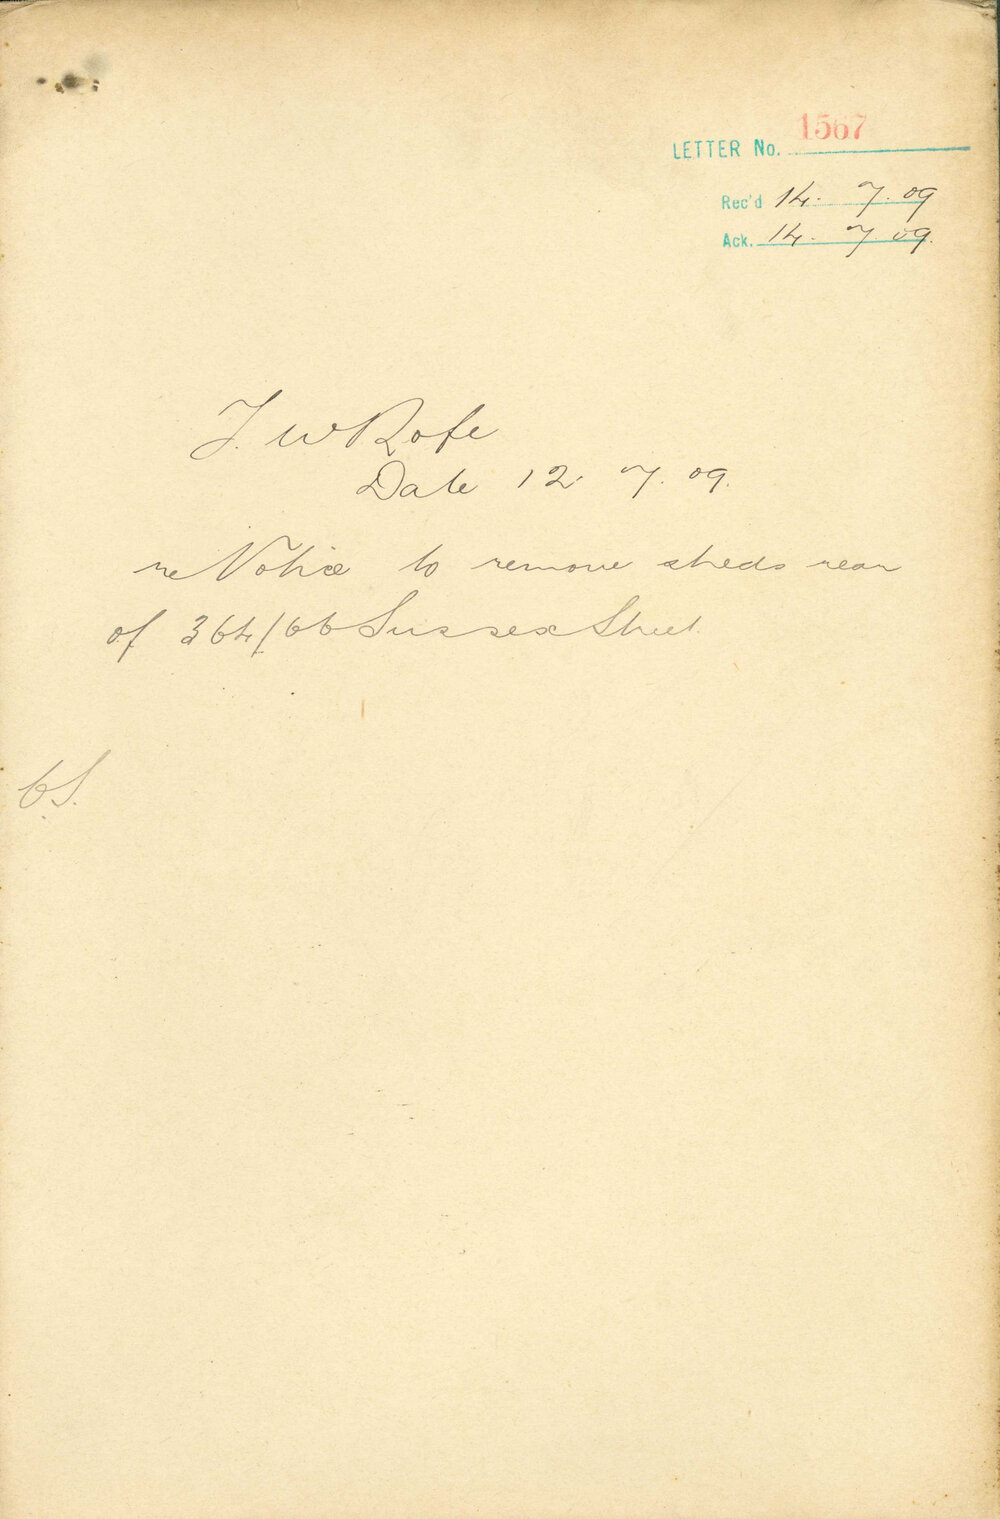 LETTER No. 1567
Rec'd 14. 7. 09
Ack. 14. 7. 09.
J. W Rofe
Date 12. 7. 09.
re Notice to remove sheds rear
of 364/66 Sussex Street.